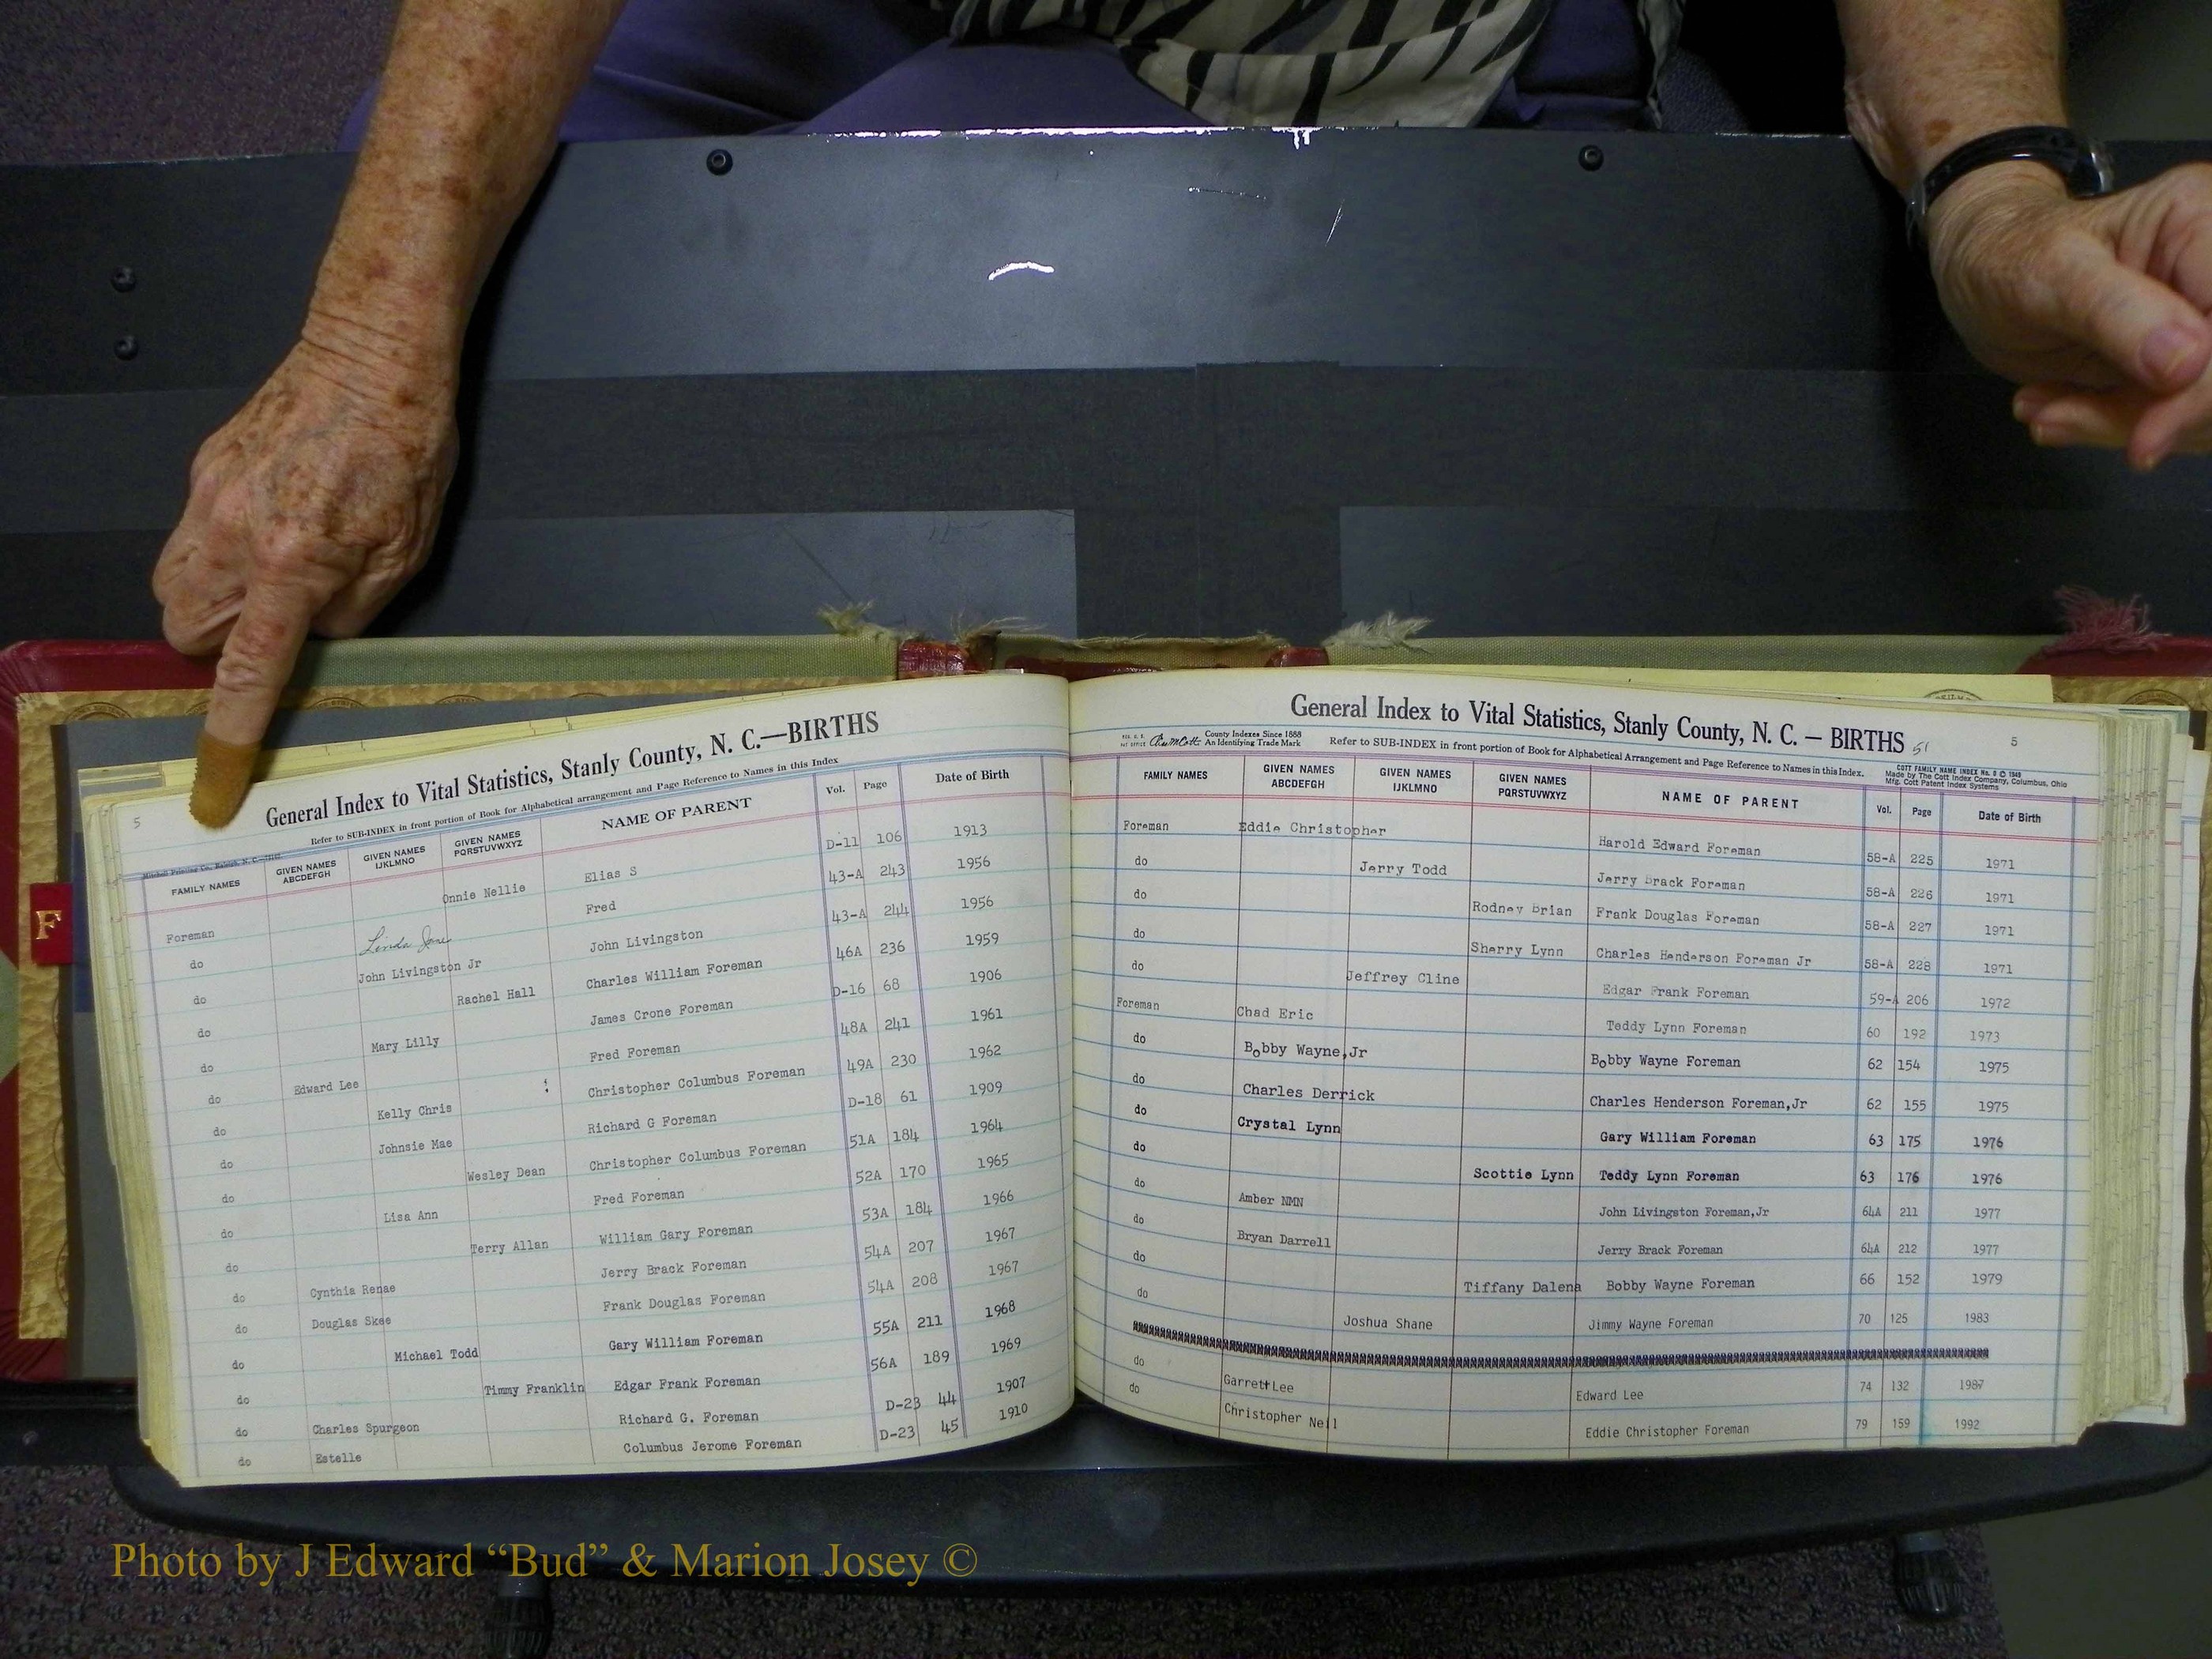 General Index to Vital Statistics, Stanly County, N. C.—BIRTHS
5
Refer to SUB-INDEX in front portion of Book for Alphabetical arrangement and Page Reference to Names in this Index
Mitchell Printing Co., Raleigh, N. C.
FAMILY NAMES GIVEN NAMES ABCDEFGH GIVEN NAMES IJKLMNO GIVEN NAMES PQRSTUVWXYZ NAME OF PARENT Vol. Page Date of Birth
Foreman Onnie Nellie Elias S D-11 106 1913
do Linda Jane Fred 43-A 243 1956
do John Livingston Jr John Livingston 43-A 244 1956
do Rachel Hall Charles William Foreman 46A 236 1959
do Mary Lilly James Crone Foreman D-16 68 1906
do Edward Lee Fred Foreman 48A 241 1961
do Kelly Chris Christopher Columbus Foreman 49A 230 1962
do Johnsie Mae Richard G Foreman D-18 61 1909
do Wesley Dean Christopher Columbus Foreman 51A 184 1964
do Lisa Ann Fred Foreman 52A 170 1965
do Terry Allan William Gary Foreman 53A 184 1966
do Cynthia Renae Jerry Brack Foreman 54A 207 1967
do Douglas Skee Frank Douglas Foreman 54A 208 1967
do Michael Todd Gary William Foreman 55A 211 1968
do Timmy Franklin Edgar Frank Foreman 56A 189 1969
do Charles Spurgeon Richard G. Foreman D-23 44 1907
do Estelle Columbus Jerome Foreman D-23 45 1910
F
General Index to Vital Statistics, Stanly County, N. C. — BIRTHS 51 5
County Indexes Since 1888
An Identifying Trade Mark
Refer to SUB-INDEX in front portion of Book for Alphabetical Arrangement and Page Reference to Names in this Index.
COTT FAMILY NAME INDEX No. 8 © 1949
Made by The Cott Index Company, Columbus, Ohio
Mfg. Cott Patent Index Systems
FAMILY NAMES GIVEN NAMES ABCDEFGH GIVEN NAMES IJKLMNO GIVEN NAMES PQRSTUVWXYZ NAME OF PARENT Vol. Page Date of Birth
Foreman Eddie Christopher Harold Edward Foreman 58-A 225 1971
do Jerry Todd Jerry Brack Foreman 58-A 226 1971
do Rodney Brian Frank Douglas Foreman 58-A 227 1971
do Sherry Lynn Charles Henderson Foreman Jr 58-A 228 1971
do Jeffrey Cline Edgar Frank Foreman 59-A 206 1972
Foreman Chad Eric Teddy Lynn Foreman 60 192 1973
do Bobby Wayne,Jr Bobby Wayne Foreman 62 154 1975
do Charles Derrick Charles Henderson Foreman,Jr 62 155 1975
do Crystal Lynn Gary William Foreman 63 175 1976
do Scottie Lynn Teddy Lynn Foreman 63 176 1976
do Amber NMN John Livingston Foreman,Jr 64A 211 1977
do Bryan Darrell Jerry Brack Foreman 64A 212 1977
do Tiffany Dalena Bobby Wayne Foreman 66 152 1979
do Joshua Shane Jimmy Wayne Foreman 70 125 1983
do Garrett Lee Edward Lee 74 132 1987
do Christopher Neil Eddie Christopher Foreman 79 159 1992
Photo by J Edward “Bud” & Marion Josey ©